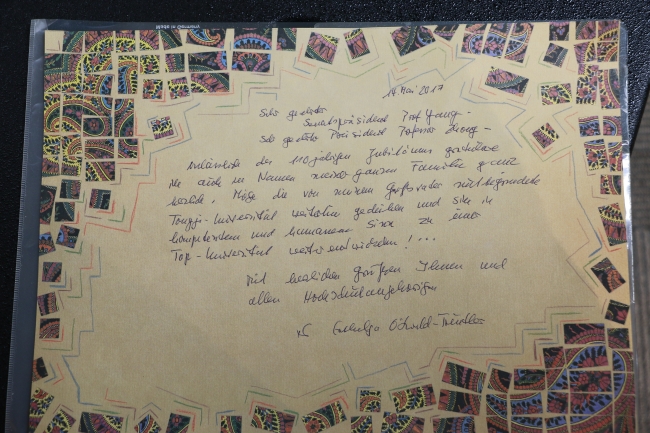 14. Mai 2017
Sehr geehrter
Senatspräsident Prof Yang –
Sehr geehrter Präsident Professor Zhong –
Anlässlich des 110 jährigen Jubiläums gratuliere
ich auch im Namen meiner ganzen Familie ganz
herzlich. Möge die von meinem Großvater mitbegründete
Tongji-Universität weiterhin gedeihen und sich in
kompetentem und humanem Sinn zu einer
Top-Universität weiterentwickeln! ...
Mit herzlichen Grüßen Ihnen und
allen Hochschulangehörigen